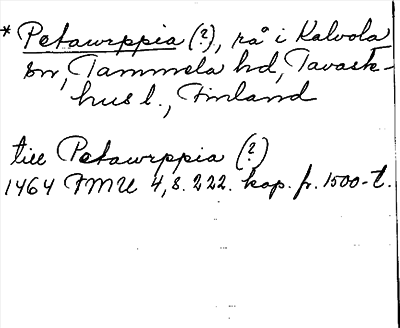 * Petawrppia (?), rå i Kalvola
sn, Tammela hd, Tavaste-
hus l., Finland
till Petawrppia (?)
1464 FMU 4, s. 222. kop. fr. 1500-t.